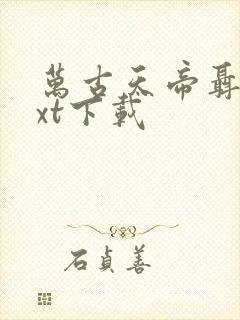 萬古天帝聶
xt下載
石貞善